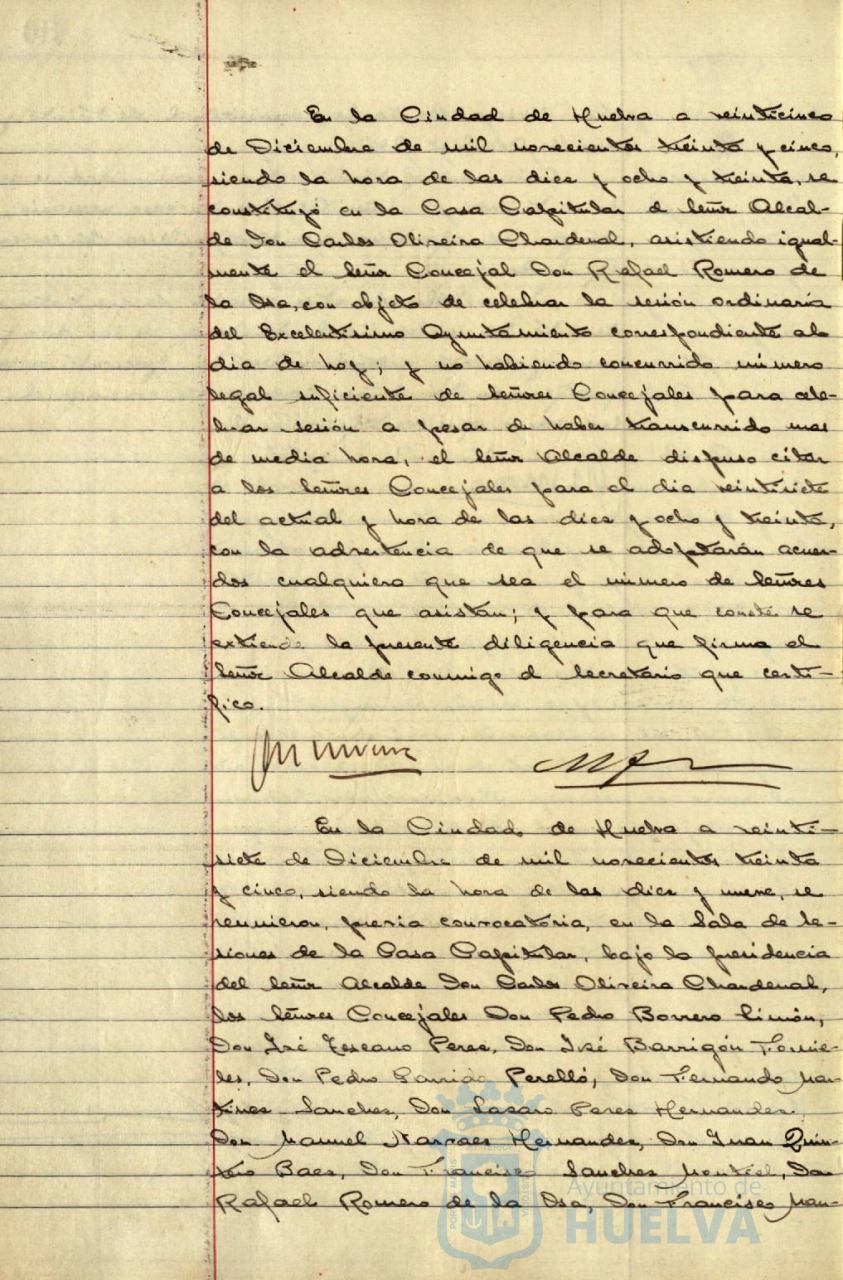 En la Ciudad de Huelva a veinticinco
de Diciembre de mil novecientos treinta y cinco,
siendo la hora de las diez y ocho y treinta, se
constituyó en la Casa Capitular el Señor Alcal-
de Don Carlos Oliveira Chardenal, asistiendo igual-
mente el Señor Concejal Don Rafael Romero de
la Osa, con objeto de celebrar la sesión ordinaria
del Excelentisimo Ayuntamiento correspondiente al
dia de hoy; y no habiendo concurrido número
legal suficiente de Señores Concejales para cele-
brar sesión a pesar de haber transcurrido mas
de media hora, el Señor Alcalde dispuso citar
a los Señores Concejales para el dia veintisiete
del actual y hora de las diez y ocho y treinta,
con la advertencia de que se adoptarán acuer-
dos cualquiera que sea el número de Señores
Concejales que asistan; y para que conste se
extiende la presente diligencia que firma el
Señor Alcalde conmigo el Secretario que certi-
fico.
En la Ciudad de Huelva a veinti-
siete de Diciembre de mil novecientos treinta
y cinco, siendo la hora de las diez y nueve, se
reunieron, previa convocatoria, en la Sala de Se-
siones de la Casa Capitular, bajo la presidencia
del Señor Alcalde Don Carlos Oliveira Chardenal,
los Señores Concejales Don Pedro Borrero Limón,
Don José Lescano Perez, Don José Barrigón Fornie-
les, Don Pedro Garrido Perelló, Don Fernando Mar-
tinez Sanchez, Don Lazaro Perez Hernandez,
Don Manuel Narvaez Hernandez, Don Juan Quin-
tero Baez, Don Francisco Sanchez Montiel, Don
Rafael Romero de la Osa, Don Francisco Man-
Ayuntamiento de
HUELVA